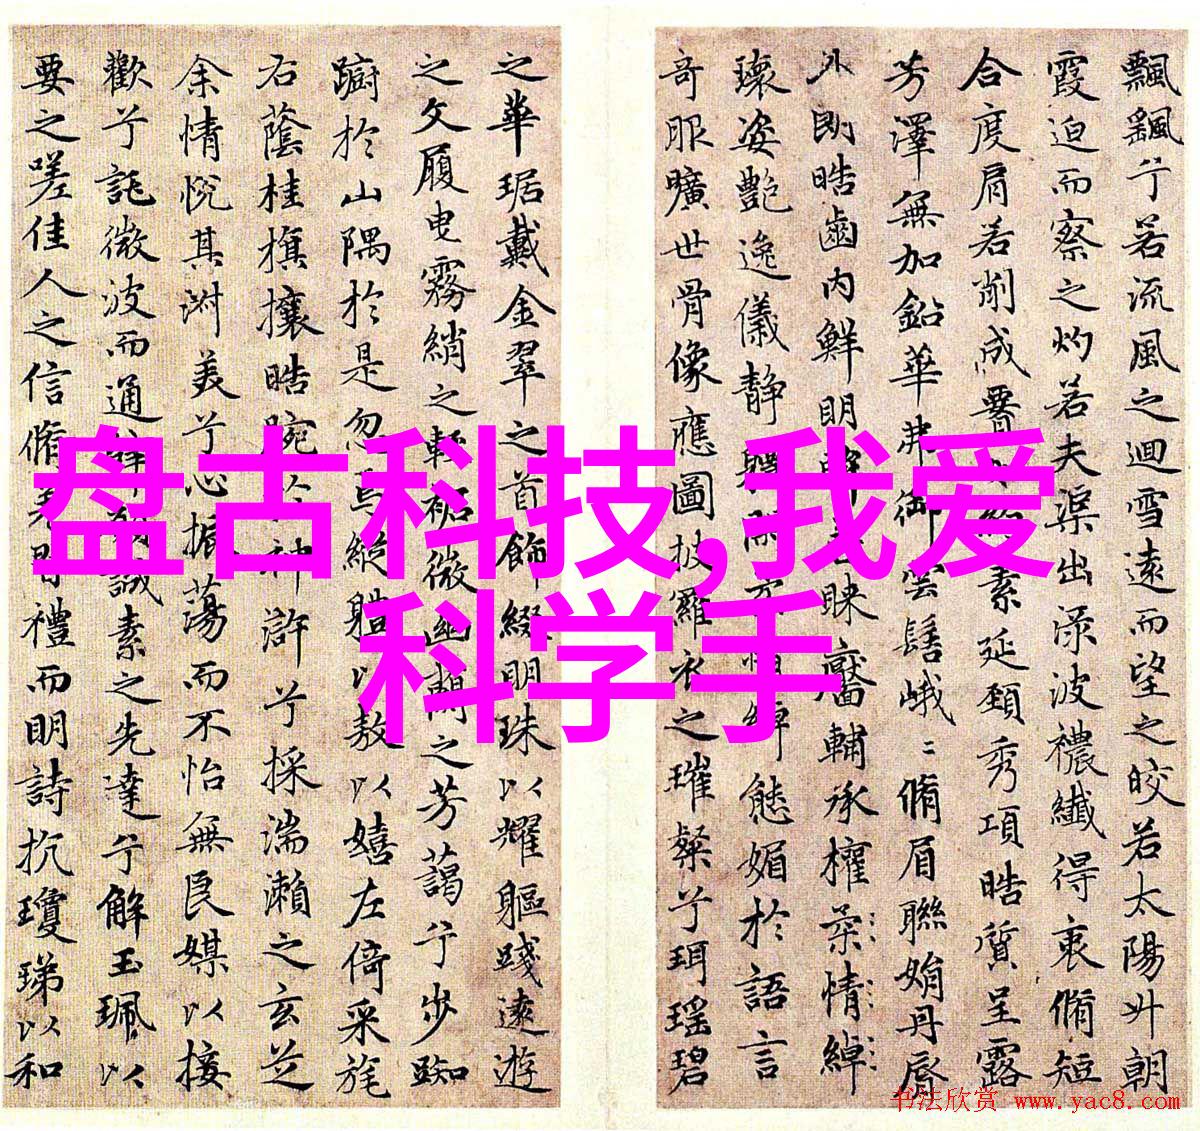 飄飖兮若流風之迴雪遠而望之皎若太陽升朝
霞迫而察之灼若夫渠出渌波穠纖得衷脩短
合度肩若削成素延頸秀項皓質呈露
芳澤無加鉛華弗御雲髻峨〻脩眉聯娟丹脣
外朗皓齒内鮮明眸善睞靨輔承權柔情綽
瓌姿艷逸儀靜體閑綽態媚於語言
奇服曠世骨像應圖披羅衣之璀粲兮珥瑤碧
之華琚戴金翠之首飾綴明珠以耀軀踐遠遊
之文履曳霧綃之輕裾微幽蘭之芳藹兮步踟
躕於山隅於是忽焉縱體以敖以嬉左倚采旄
右蔭桂旗攘皓腕於神滸兮採湍瀨之玄芝
余情悅其淑美兮心振蕩而不怡無良媒以接
歡兮託微波而通誠素之先達兮解玉珮以
要之嗟佳人之信脩禮而明詩抗瓊珶以和
盘古科技,我爱
科学手
书法欣赏 www.yac8.com